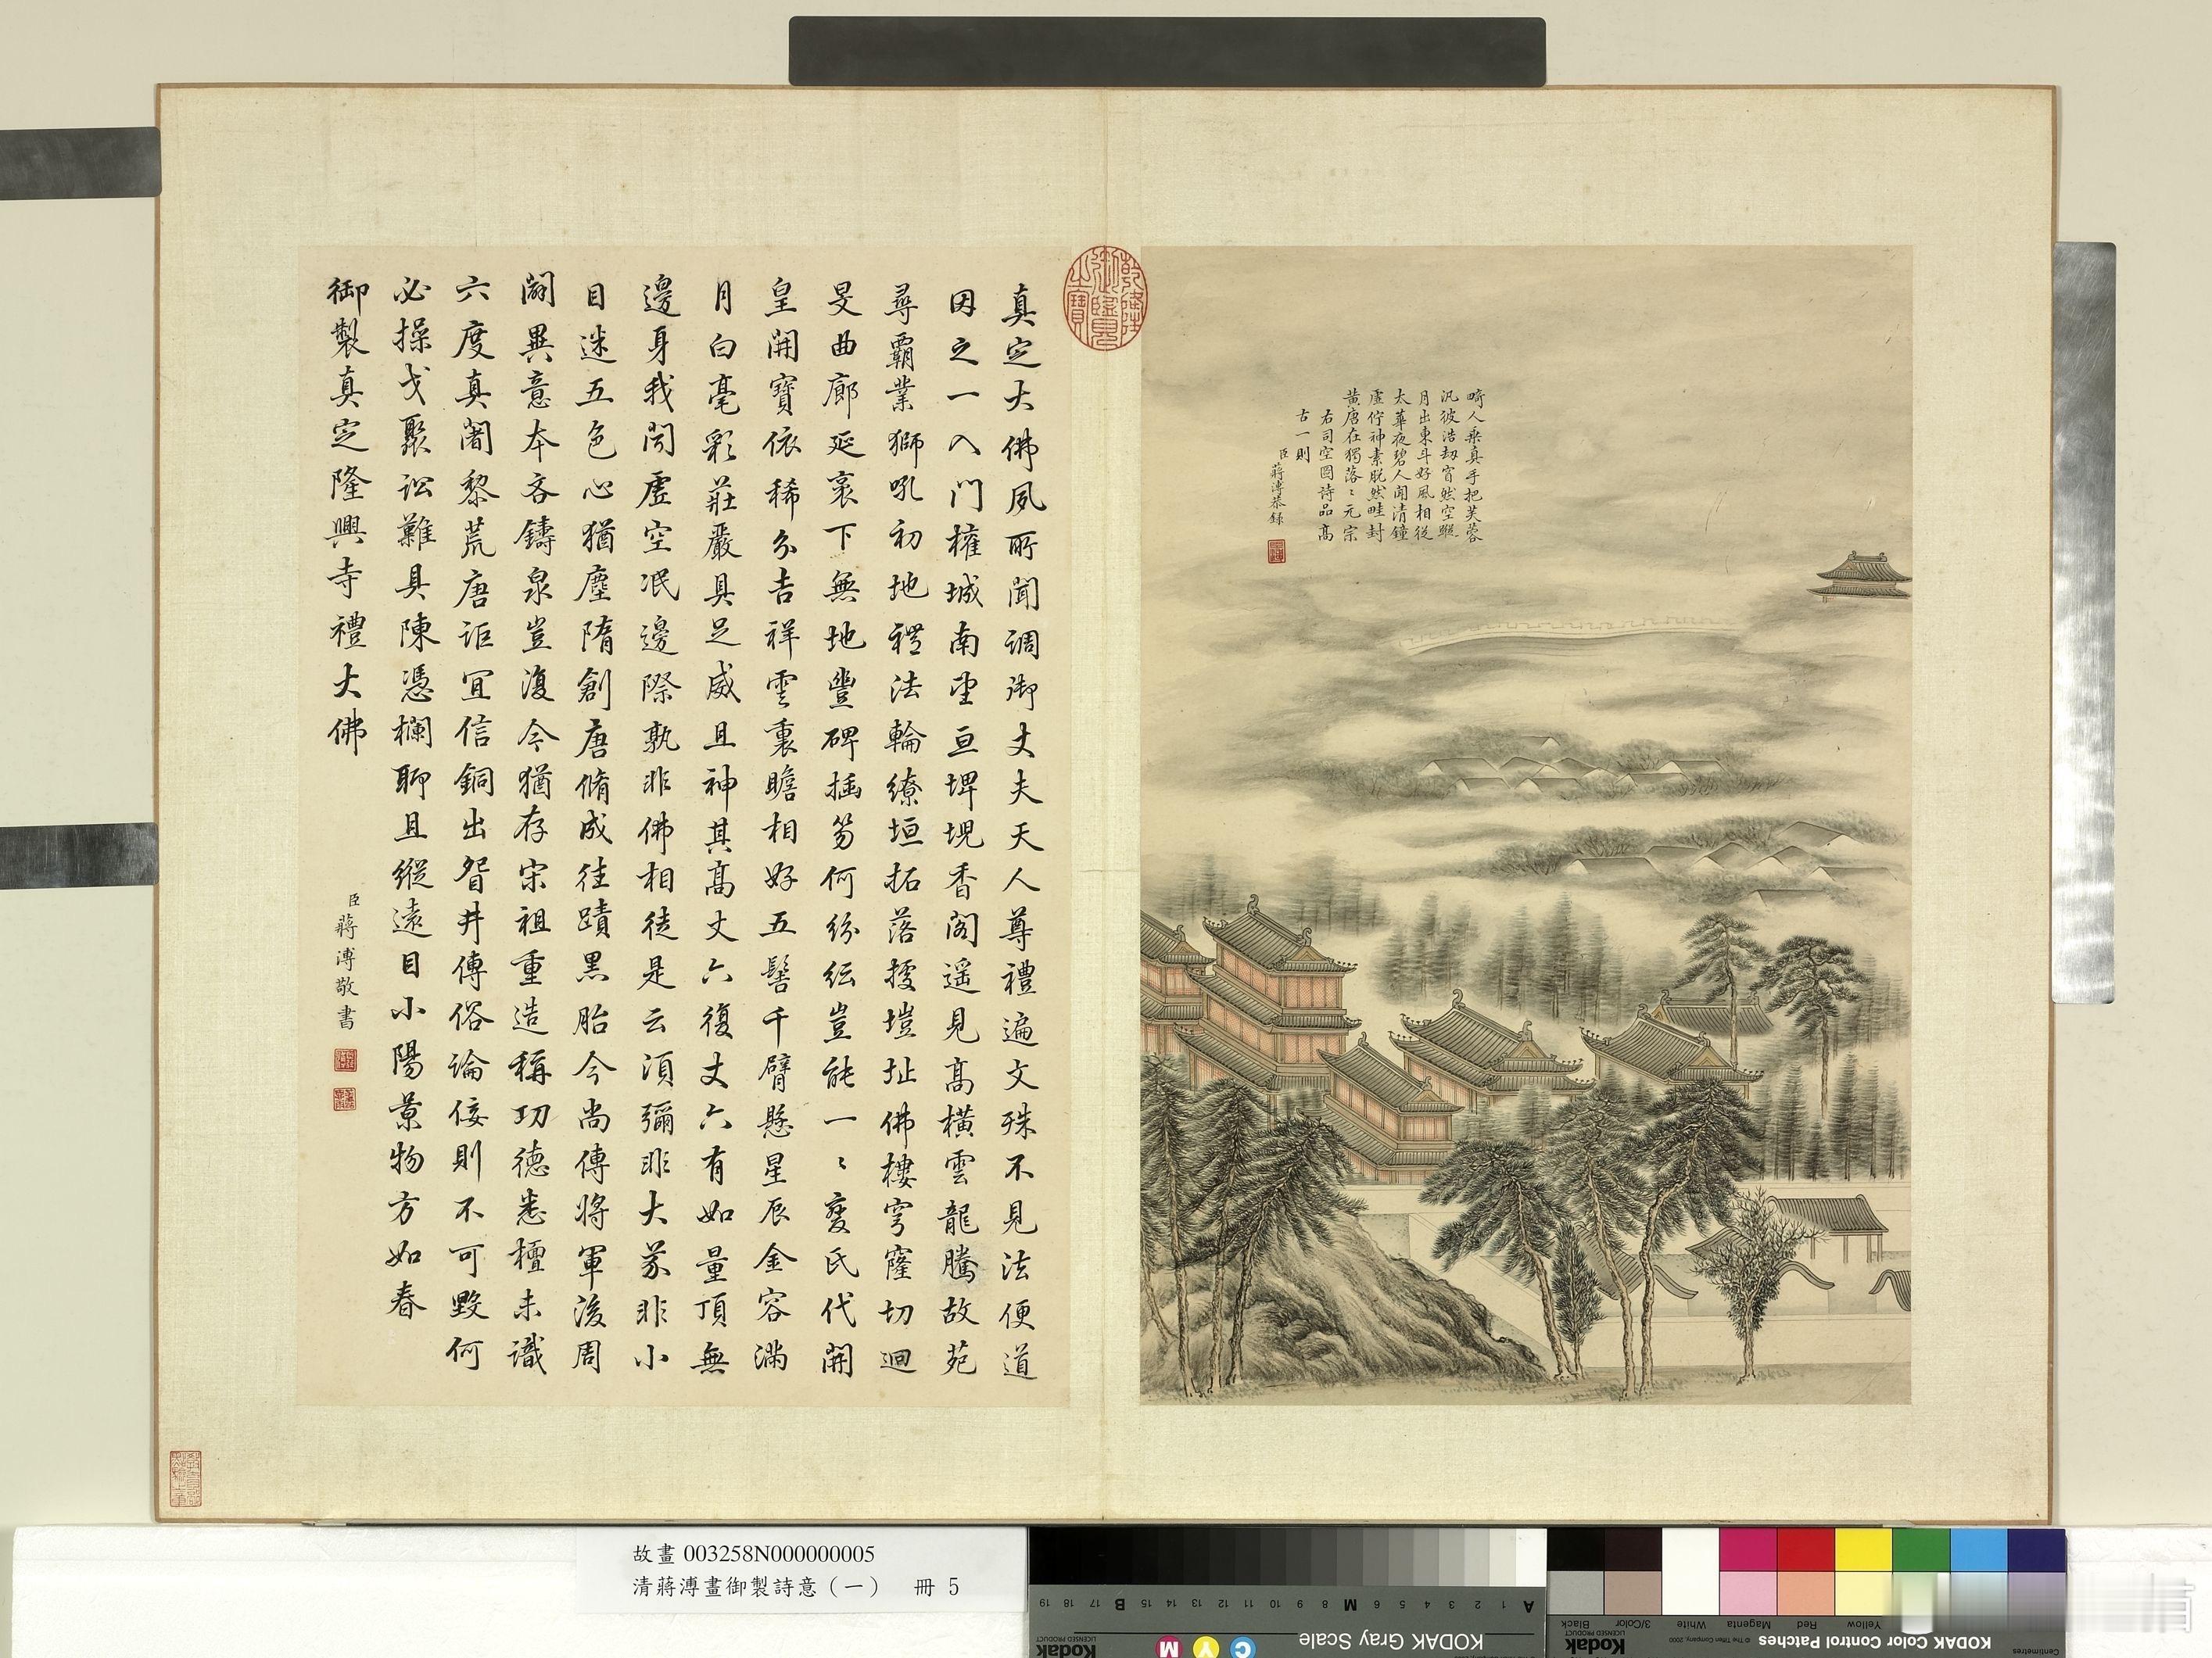 畸人乘真手把芙蓉
汎彼浩劫窅然空蹤
月出東斗好風相從
太華夜碧人聞清鐘
虛佇神素脫然畦封
黃唐在獨落〻元宗
右司空圖詩品高
古一則
臣蔣溥恭錄
乾隆御覽之寶
真定大佛夙所聞調御丈夫天人尊禮遍文殊不見法便道
因之一入門榷城南望亘埤堄香閣遥見高橫雲龍騰故苑
尋霸業獅吼初地禮法輪繚垣拓落擾塏址佛樓穹窿切迴
旻曲廊延袤下無地豐碑插笏何紛紜豈能一〻變氏代開
皇開寶依稀分吉祥雲裏瞻相好五髻千臂懸星辰金容滿
月白毫彩莊嚴具足威且神其高丈六復丈六有如量頂無
邊身我聞虛空泯邊際孰非佛相徒是云湏彌非大芥非小
目迷五色心猶塵隋創唐脩成往蹟黑胎今尚傳將軍後周
闢異意本吝鑄泉豈復今猶存宋祖重造稱功德悉檀未識
六度真闍黎荒唐詎宜信銅出眢井傳俗論佞則不可毀何
必操戈聚訟難具陳憑欄聊且縱遠目小陽景物方如春
御製真定隆興寺禮大佛
臣蔣溥敬書
故畫 003258N000000005
清蔣溥畫御製詩意（一） 冊 5
KODAK Gray Scale
A 1 2 3 4 5 6 M 8 9 10 11 12 13 14 15 B 17 18 19
C Y M
Kodak
LICENSED PRODUCT
KODAK Color Control Patches
© The Tiffen Company, 2000
Kodak
LICENSED PRODUCT
Centimetres
Yellow Red Magenta White 3/Color Black